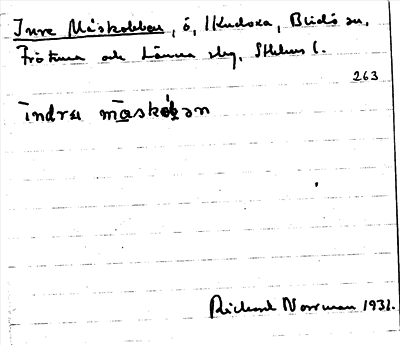 Inre Måskobben, ö, 1 Kudoxa, Blidö sn,
Frötuna och Länna skg, Sthlms l.
263
īndrɛ māskob̥ən
Richard Norrman 1931.